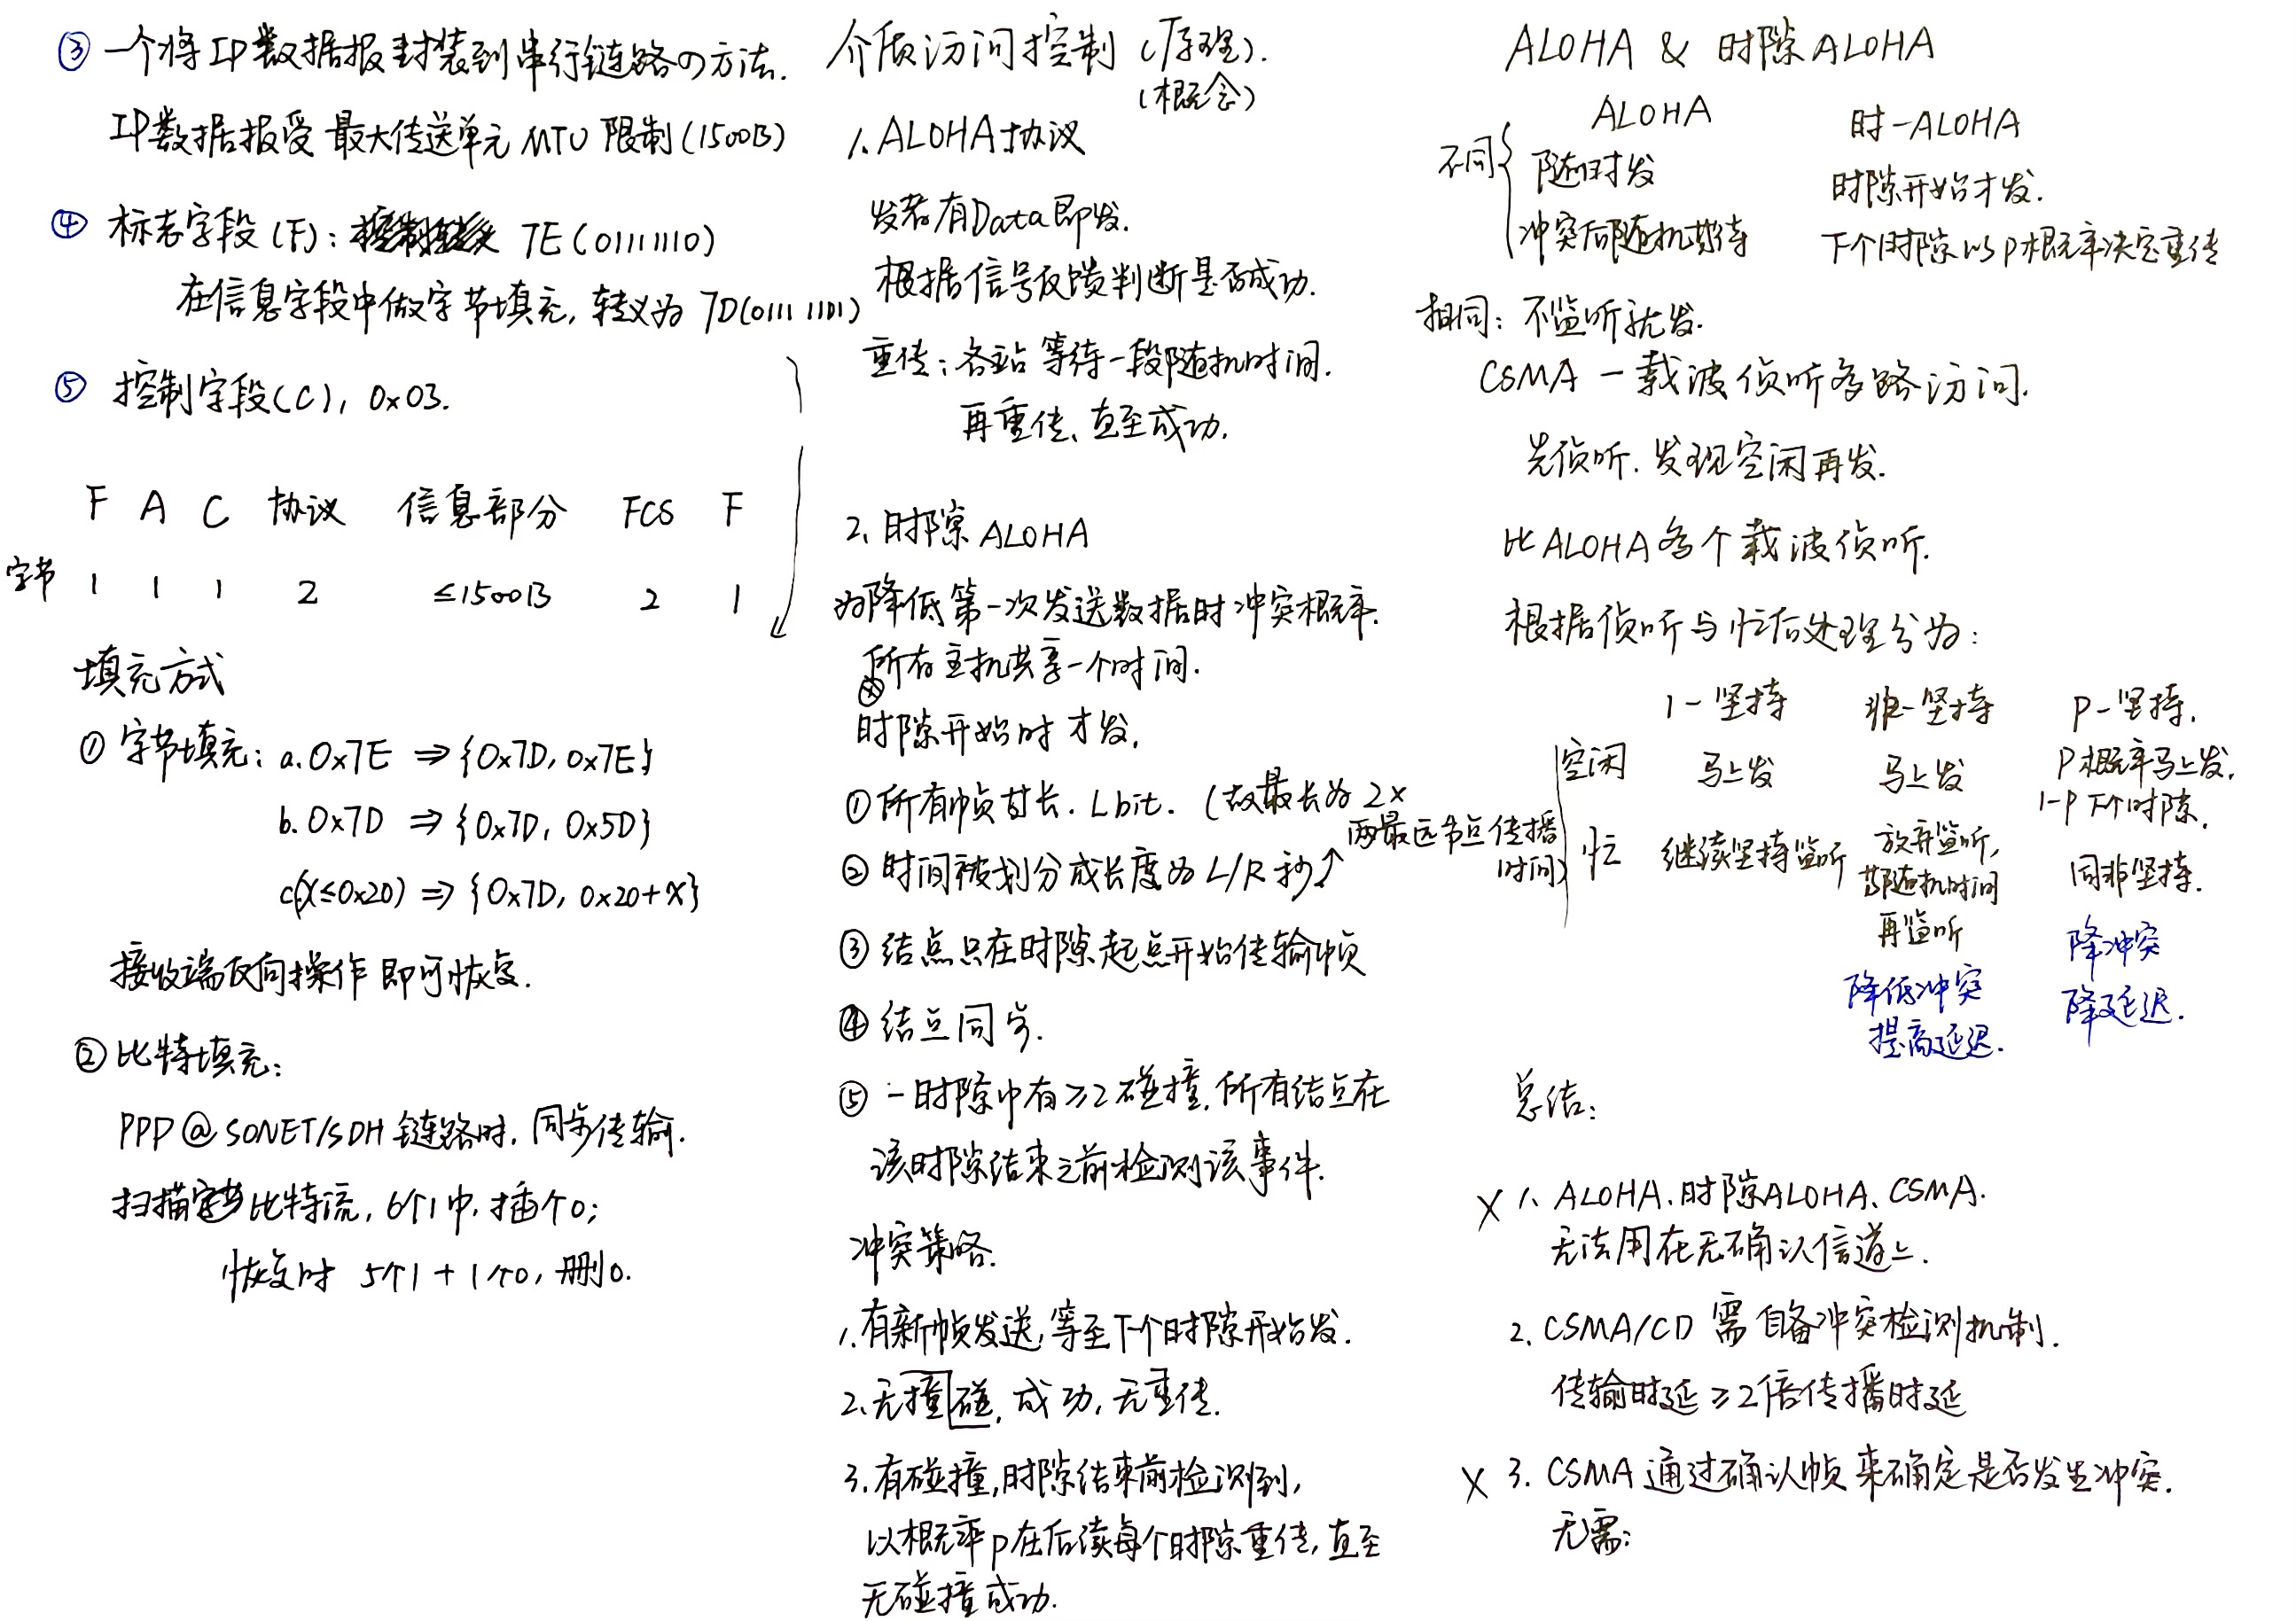 ③ 一个将IP数据报封装到串行链路の方法.
IP数据报受 最大传送单元 MTU 限制(1500B)
④ 标志字段(F): 7E(01111110)
在信息字段中做字节填充, 转义为 7D(01111101)
⑤ 控制字段(C), 0x03.
F A C 协议 信息部分 FCS F
字节 1 1 1 2 ≤1500B 2 1
填充方式
① 字节填充: a. 0x7E ⇒ {0x7D, 0x7E}
b. 0x7D ⇒ {0x7D, 0x5D}
c(x≤0x20) ⇒ {0x7D, 0x20+x}
接收端反向操作 即可恢复.
② 比特填充:
PPP@SONET/SDH 链路时. 同步传输.
扫描 比特流, 6个1中, 插个0;
恢复时 5个1 + 1个0, 删0.
介质访问控制 (原理).
(概念)
1. ALOHA协议
发者有Data即发.
根据信号反馈判断是否成功.
重传: 各站 等待一段随机时间.
再重传、直至成功.
2. 时隙 ALOHA
为降低第一次发送数据时冲突概率.
所有主机共享一个时间.
时隙开始时 才发.
① 所有帧 长. L bit. (故最长为 2×
两最远节点传播
时间)
② 时间被划分成长度为 L/R 秒↑
③ 结点只在时隙起点开始传输帧
④ 结点同步.
⑤ 一时隙中有≥2碰撞, 所有结点在
该时隙结束之前检测该事件.
冲突策略.
1. 有新帧发送, 等至下个时隙开始发.
2. 无撞碰, 成功, 无重传.
3. 有碰撞, 时隙结束前检测到,
以概率p在后续每个时隙重传, 直至
无碰撞成功.
ALOHA & 时隙ALOHA
ALOHA 时-ALOHA
不同{ 随时发 时隙开始才发.
冲突后随机等待 下个时隙以p概率决定重传
相同: 不监听就发.
CSMA — 载波侦听多路访问.
先侦听. 发现空闲再发.
比ALOHA多个载波侦听.
根据侦听与忙后处理分为:
1-坚持 非-坚持 P-坚持.
空闲 马上发 马上发 P概率马上发,
1-P 下个时隙.
忙 继续坚持监听 放弃监听, 同非坚持.
随机时间
再监听
降低冲突 降冲突
提高延迟. 降延迟.
总结:
X 1. ALOHA. 时隙ALOHA、CSMA.
无法用在无确认信道上.
2. CSMA/CD 需自备冲突检测机制.
传输时延≥2倍传播时延
X 3. CSMA 通过确认帧来确定是否发生冲突.
无需;